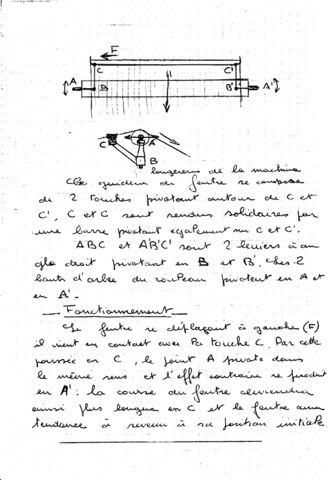 F
C C'
A B B' A'
C A
B
longerons de la machine
Ce guideur de feutre se compose
de 2 touches pivotant autour de C et
C'. C et C' sont rendus solidaires par
une barre pivotant également sur C et C'.
ABC et A'B'C' sont 2 leviers à an
gle droit pivotant en B et B'. Les 2
bouts d'arbre du rouleau pivotent en A et
en A'.
Fonctionnement
Le feutre se déplaçant à gauche (F)
il vient en contact avec la touche C. Par cette
poussée en C, le joint A pivote dans
le même sens et l'effet contraire se produit
en A' : la course du feutre deviendra
ainsi plus longue en C et le feutre aura
tendance à revenir à sa position initiale